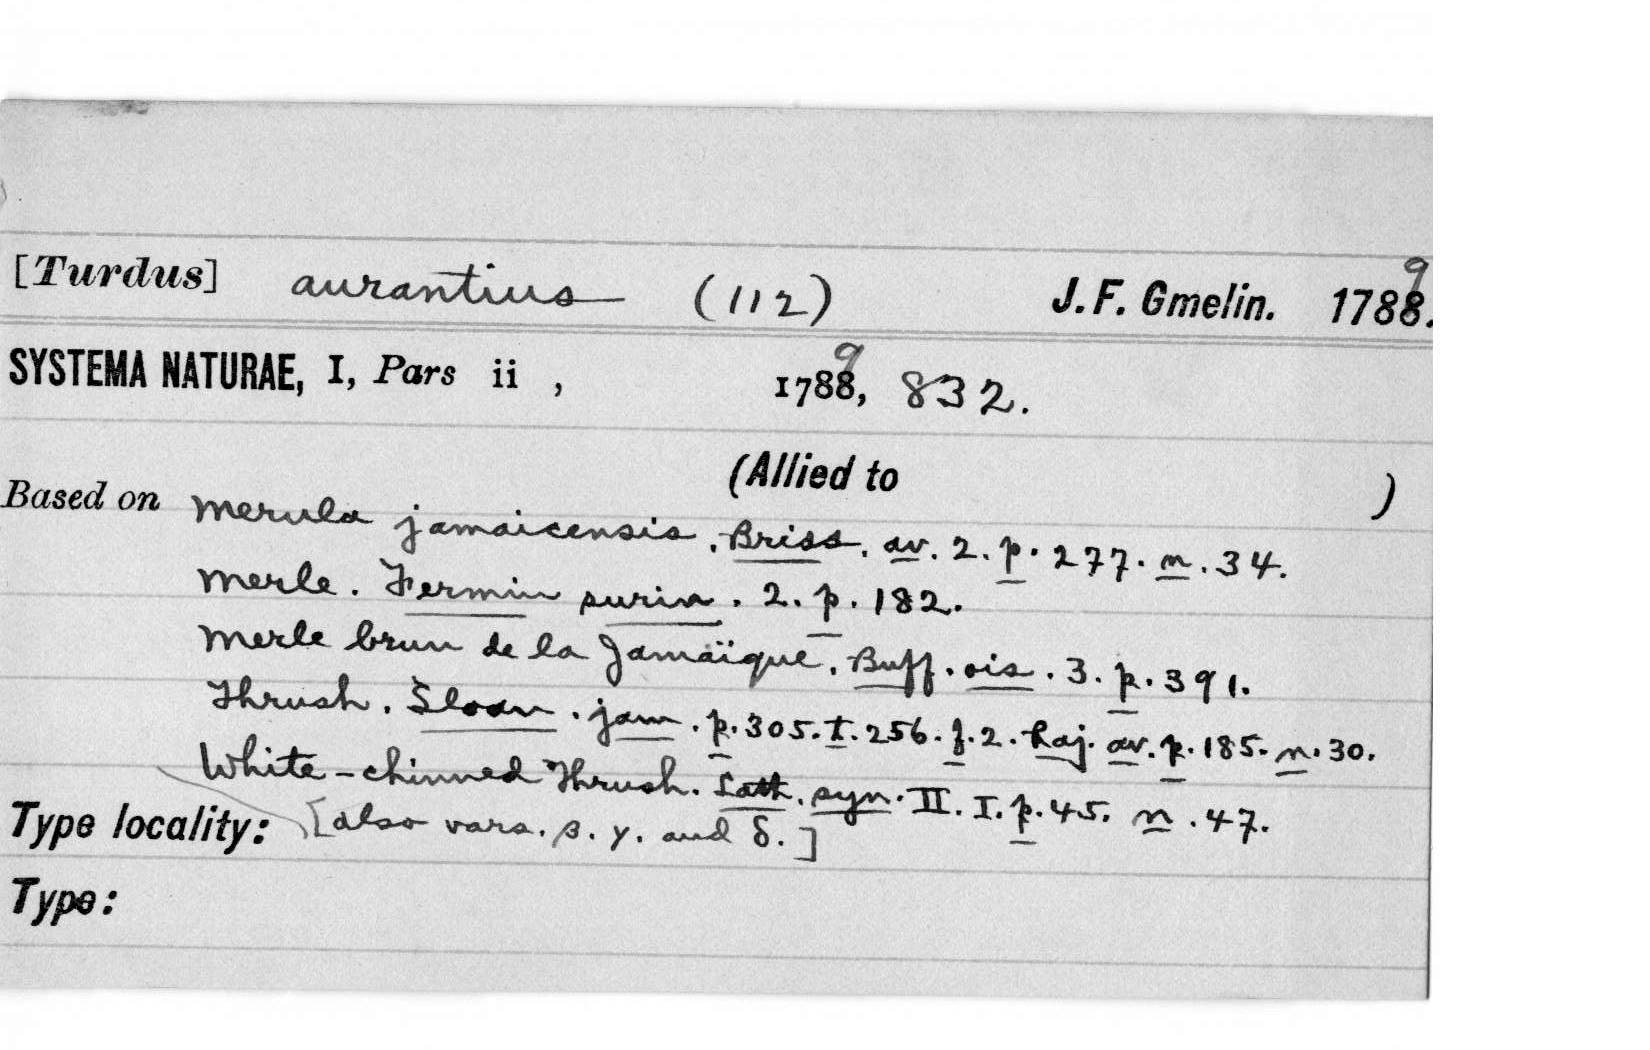 [Turdus] aurantius (112) J. F. Gmelin. 1788. 9
SYSTEMA NATURAE, I, Pars ii , 1788, 9 832.
(Allied to )
Based on Merula jamaicensis. Briss. av. 2. p. 277. n. 34.
Merle. Fermin surin. 2. p. 182.
Merle brun de la Jamaïque. Buff. ois. 3. p. 391.
Thrush. Sloan. jam. p. 305. t. 256. f. 2. Raj. av. p. 185. n. 30.
White-chinned Thrush. Lath. syn. II. I. p. 45. n. 47.
Type locality: [also vars. β. γ. and δ.]
Type: